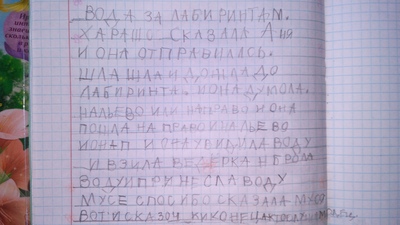 ВОДА ЗА ЛАБИРИНТАМ.
ХАРАШО СКАЗАЛА АНЯ
И ОНА ОТПРАВИЛАСЬ.
ШЛА ШЛА И ДОШЛА ДО
ЛАБИРИНТА. ИОНА ДУМОЛА.
НАЛЬЕВО ИЛИ НАПРАВО ИОНА
ПОШЛА НА ПРАВО И НАЛЬЕВО
И ОНА УВИДИЛА ВОДУ
И ВЗИЛА ВЕДЕРКА Н БРОЛА
ВОДУ И ПРИНЕСЛА ВОДУ
МУСЕ СПОСИБО СКАЗАЛА МУСЯ
ВОТ И СКАЗОЧ КИ КОНЕЦ А КТО СЛУШ